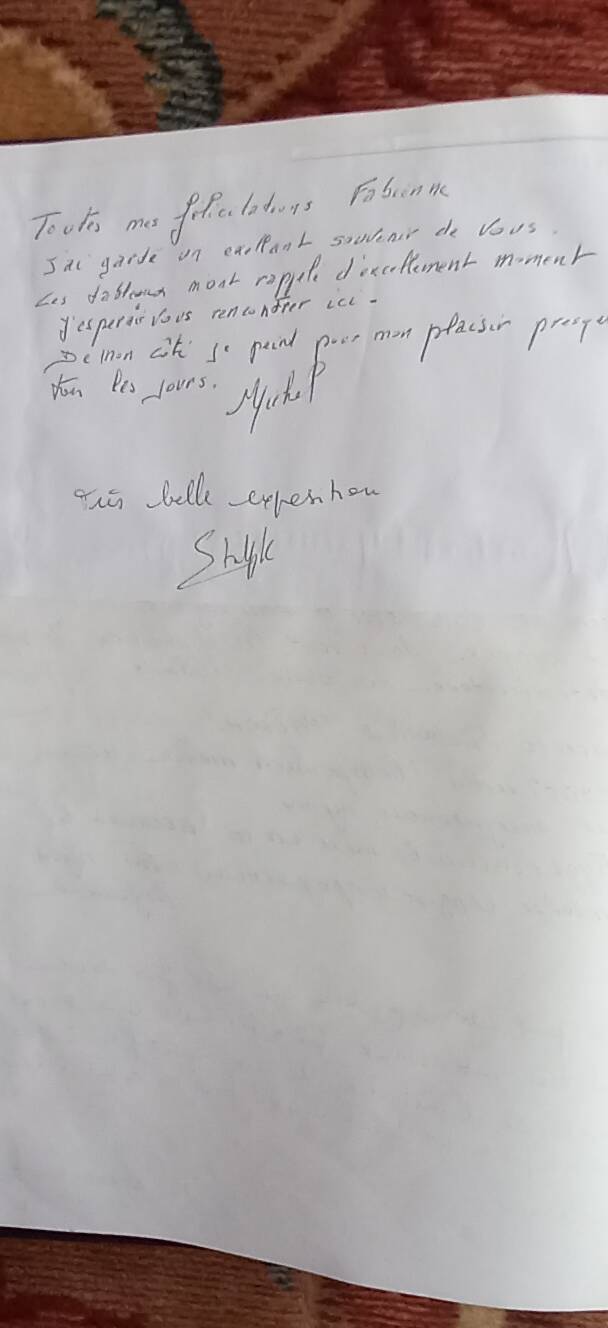 Toutes mes félicitations Fabienne
J'ai gardé un exellant souvenir de vous.
Les tableaux mont rappelé d'excellement moment
J'esperais vous rencontrer ici.
De mon côté je peind pour mon plaisir presque
tou les jours. Michel
Très belle exposition